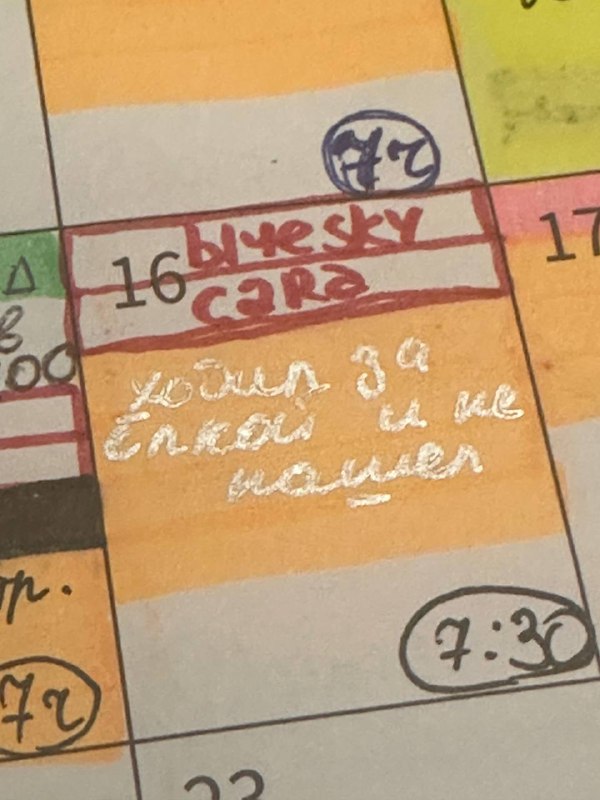 7ч
16 bluesky
cara
17
Δ
в
00
ходил за
ёлкой и не
нашел
пр.
7ч
7:30
23